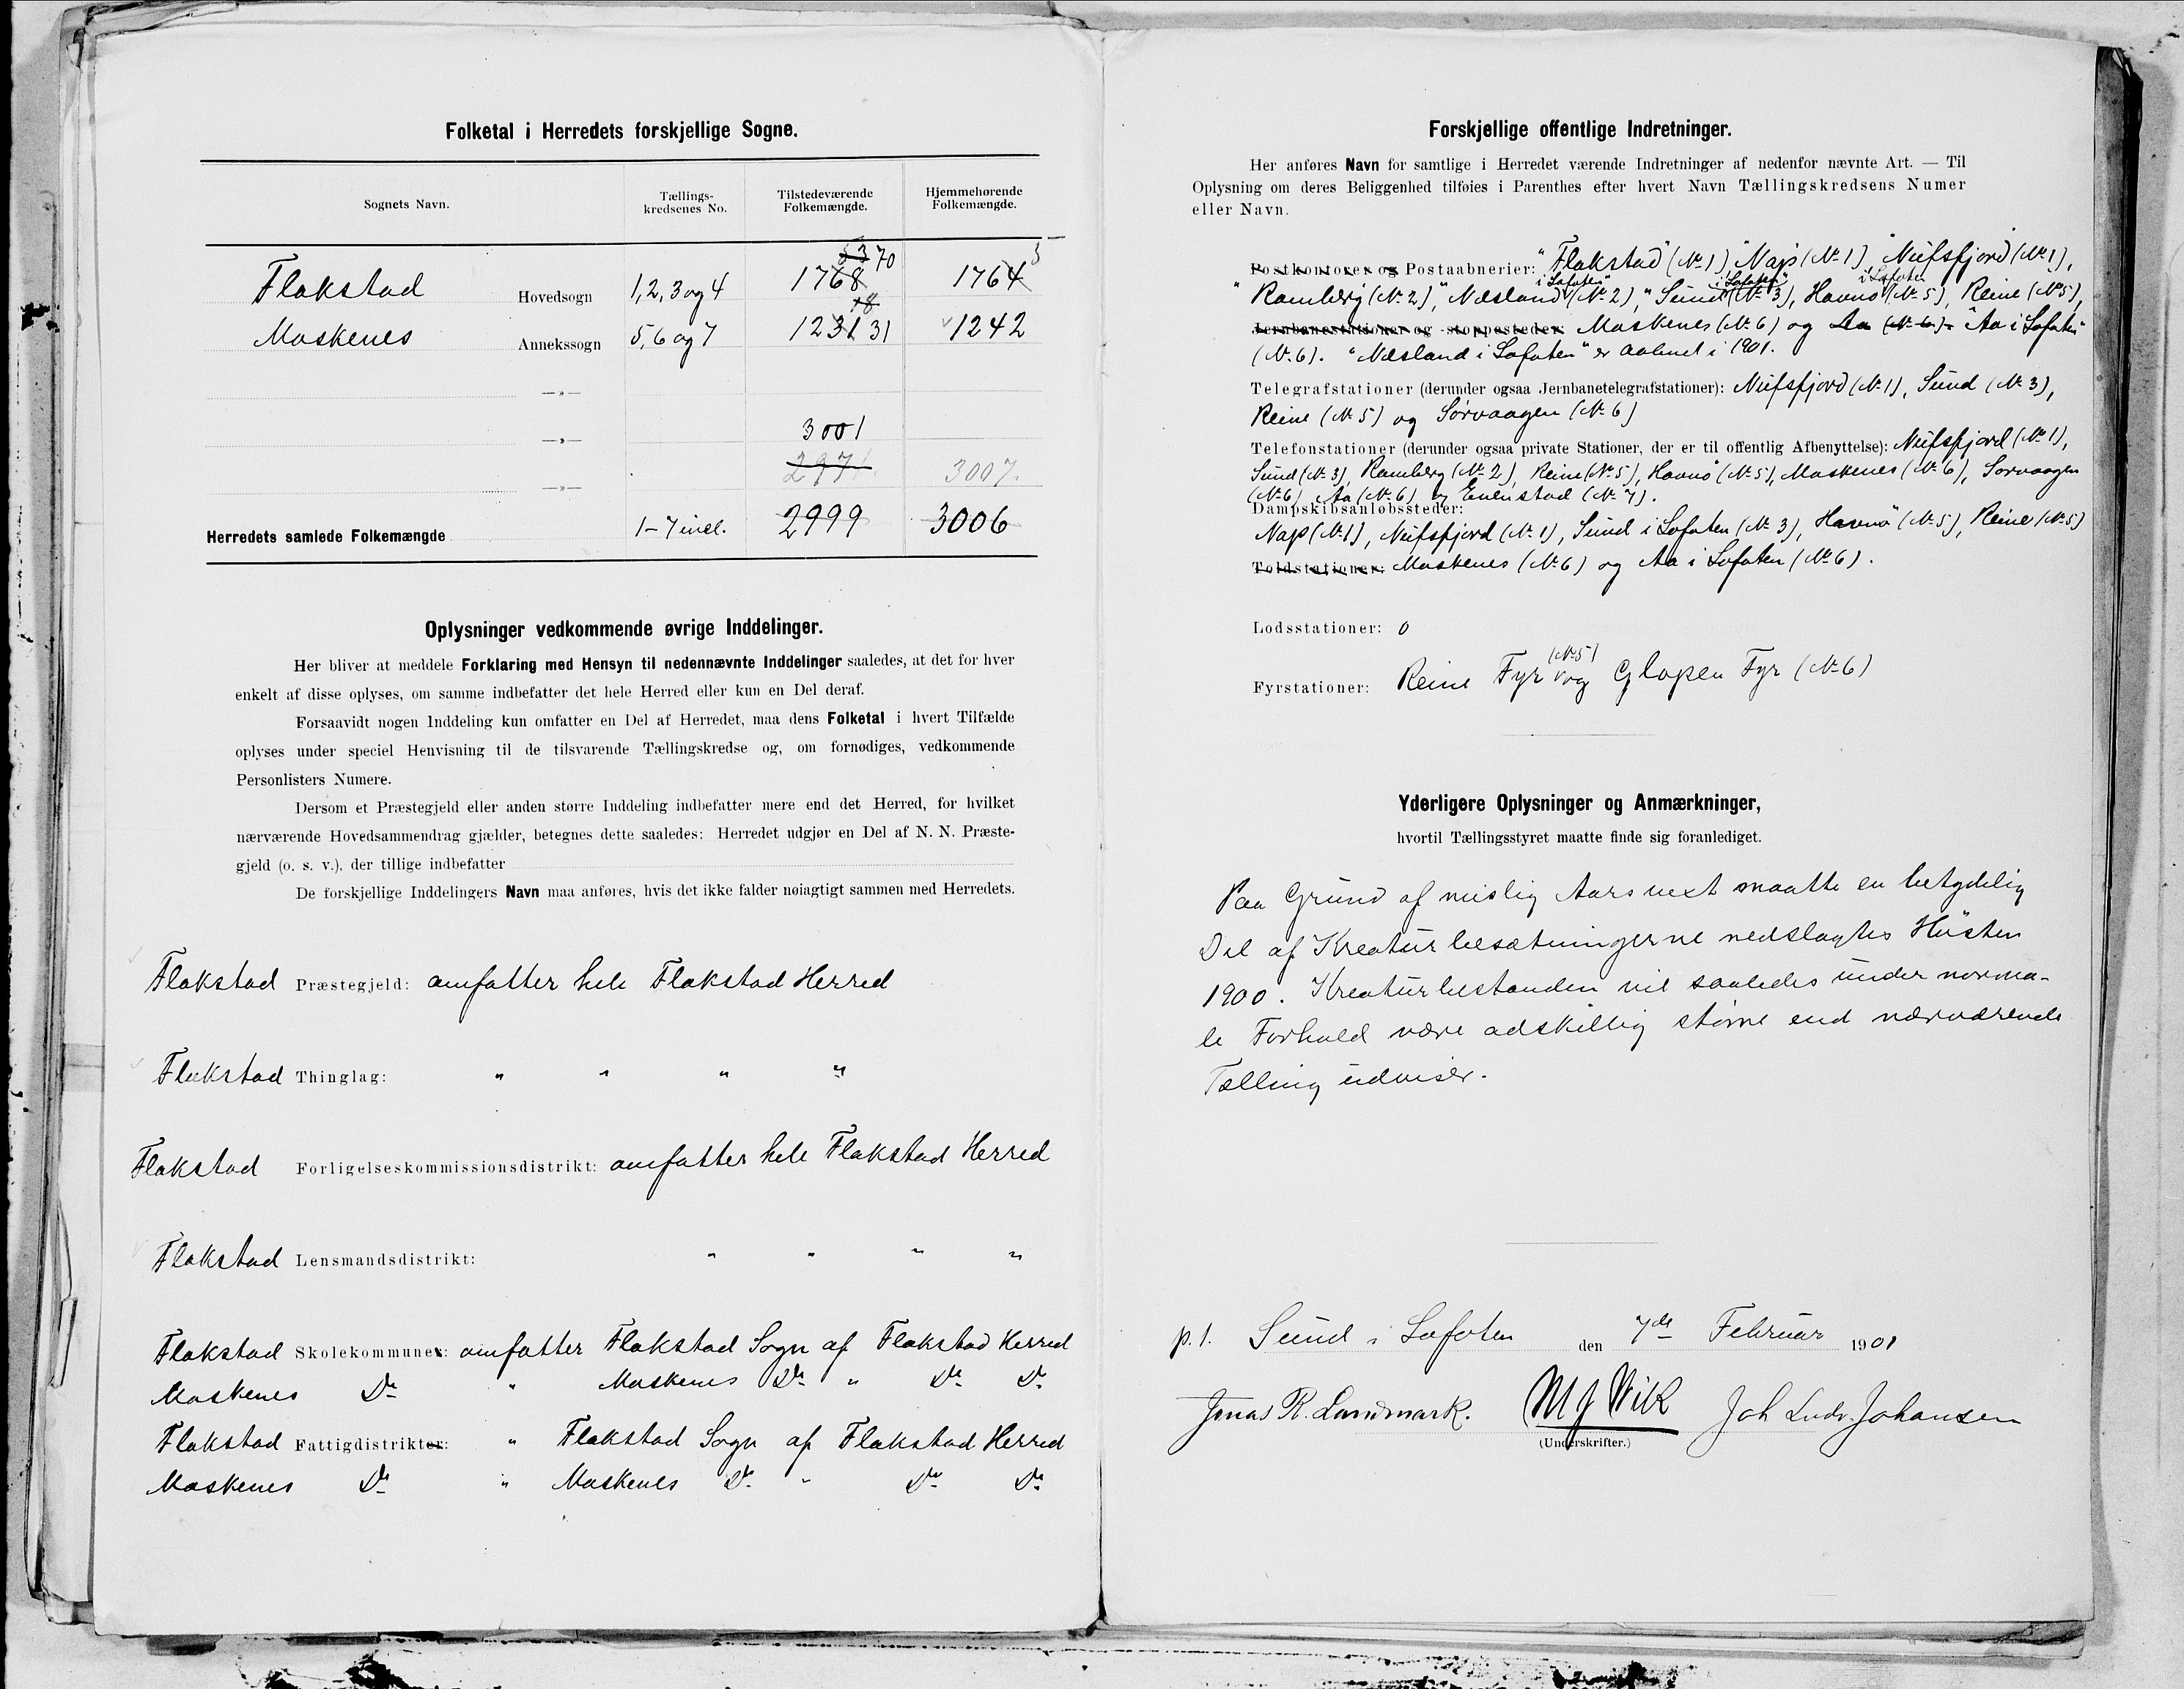 Folketal i Herredets forskjellige Sogne.
Sognets Navn. Tællings-kredsenes No. Tilstedeværende Folkemængde. Hjemmehørende Folkemængde.
70 3
Flakstad Hovedsogn 1, 2, 3 og 4 1768 1764
Moskenes Annekssogn 5, 6 og 7 1231 31 1242
—»—
—»— 3001
—»— 297 3007.
Herredets samlede Folkemængde 1-7 incl. 2999 3006
Oplysninger vedkommende øvrige Inddelinger.
Her bliver at meddele Forklaring med Hensyn til nedennævnte Inddelinger saaledes, at det for hver
enkelt af disse oplyses, om samme indbefatter det hele Herred eller kun en Del deraf.
Forsaavidt nogen Inddeling kun omfatter en Del af Herredet, maa dens Folketal i hvert Tilfælde
oplyses under speciel Henvisning til de tilsvarende Tællingskredse og, om fornødiges, vedkommende
Personlisters Numere.
Dersom et Præstegjeld eller anden større Inddeling indbefatter mere end det Herred, for hvilket
nærværende Hovedsammendrag gjælder, betegnes dette saaledes: Herredet udgjør en Del af N. N. Præste-
gjeld (o. s. v.), der tillige indbefatter
De forskjellige Inddelingers Navn maa anføres, hvis det ikke falder nøiagtigt sammen med Herredets.
Flakstad Præstegjeld: omfatter hele Flakstad Herred
Flakstad Thinglag: " " " "
Flakstad Forligelseskommissionsdistrikt: omfatter hele Flakstad Herred
Flakstad Lensmandsdistrikt: " " " "
Flakstad Skolekommuner: omfatter Flakstad Sogn af Flakstad Herred
Moskenes Do " Moskenes Do " Do Do
Flakstad Fattigdistrikter: " Flakstad Sogn af Flakstad Herred
Moskenes Do " Moskenes Do " Do Do
Forskjellige offentlige Indretninger.
Her anføres Navn for samtlige i Herredet værende Indretninger af nedenfor nævnte Art. — Til
Oplysning om deres Beliggenhed tilføies i Parenthes efter hvert Navn Tællingskredsens Numer
eller Navn.
Postkontorer og Postaabnerier: "Flakstad" (No 1) "Nap" (No 1) "Nufsfjord" (No 1),
i Lofoten" i Lofoten" i Lofoten
"Ramberg (No 2), "Næsland (No 2), "Sund (No 3), Havnø (No 5), Reine (No 5),
Jernbanestationer og -stoppesteder: Moskenes (No 6) og Aa (No 6). "Aa i Lofoten"
(No 6). "Næsland i Lofoten" er aabnet i 1901.
Telegrafstationer (derunder ogsaa Jernbanetelegrafstationer): Nufsfjord (No 1), Sund (No 3),
Reine (No 5) og Sørvaagen (No 6)
Telefonstationer (derunder ogsaa private Stationer, der er til offentlig Afbenyttelse): Nufsfjord (No 1),
Sund (No 3), Ramberg (No 2), Reine (No 5), Havnø (No 5), Moskenes (No 6), Sørvaagen
(No 6), Aa (No 6) og Evenstad (No 7).
Dampskibsanløbssteder:
Nap (No 1), Nufsfjord (No 1), Sund i Lofoten (No 3), Havnø (No 5), Reine (No 5)
Toldstationer: Moskenes (No 6) og Aa i Lofoten (No 6).
Lodsstationer: 0
(No 5)
Fyrstationer: Reine Fyr og Glopen Fyr (No 6)
Yderligere Oplysninger og Anmærkninger,
hvortil Tællingsstyret maatte finde sig foranlediget.
Paa Grund af mislig Aarsvext maatte en betydelig
Del af Kreaturbesætningerne nedslagtes Høsten
1900. Kreaturbestanden vil saaledes under norma-
le Forhold være adskillig større end nærværende
Tælling udviser.
p. t. Sund i Lofoten den 7de Februar 1901
Jonas R. Landmark. M J Wik Joh Ludv. Johansen
(Underskrifter.)